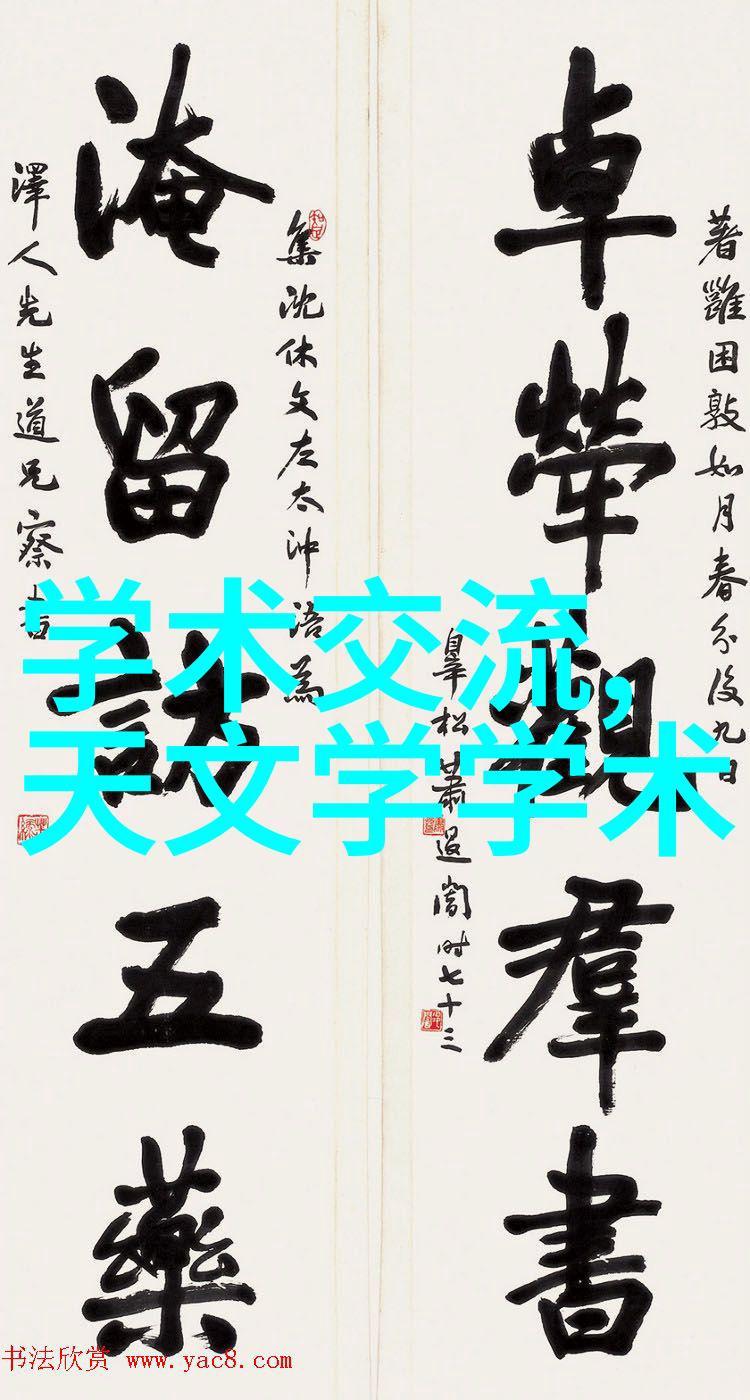 著雝困敦如月春分後九日
卓犖觀羣書
皋松蕭退闇时七十三
集沈休文左太沖语為
淹留訪五藥
澤人先生道兄察書
学术交流,
天文学学术
书法欣赏 www.yac8.com